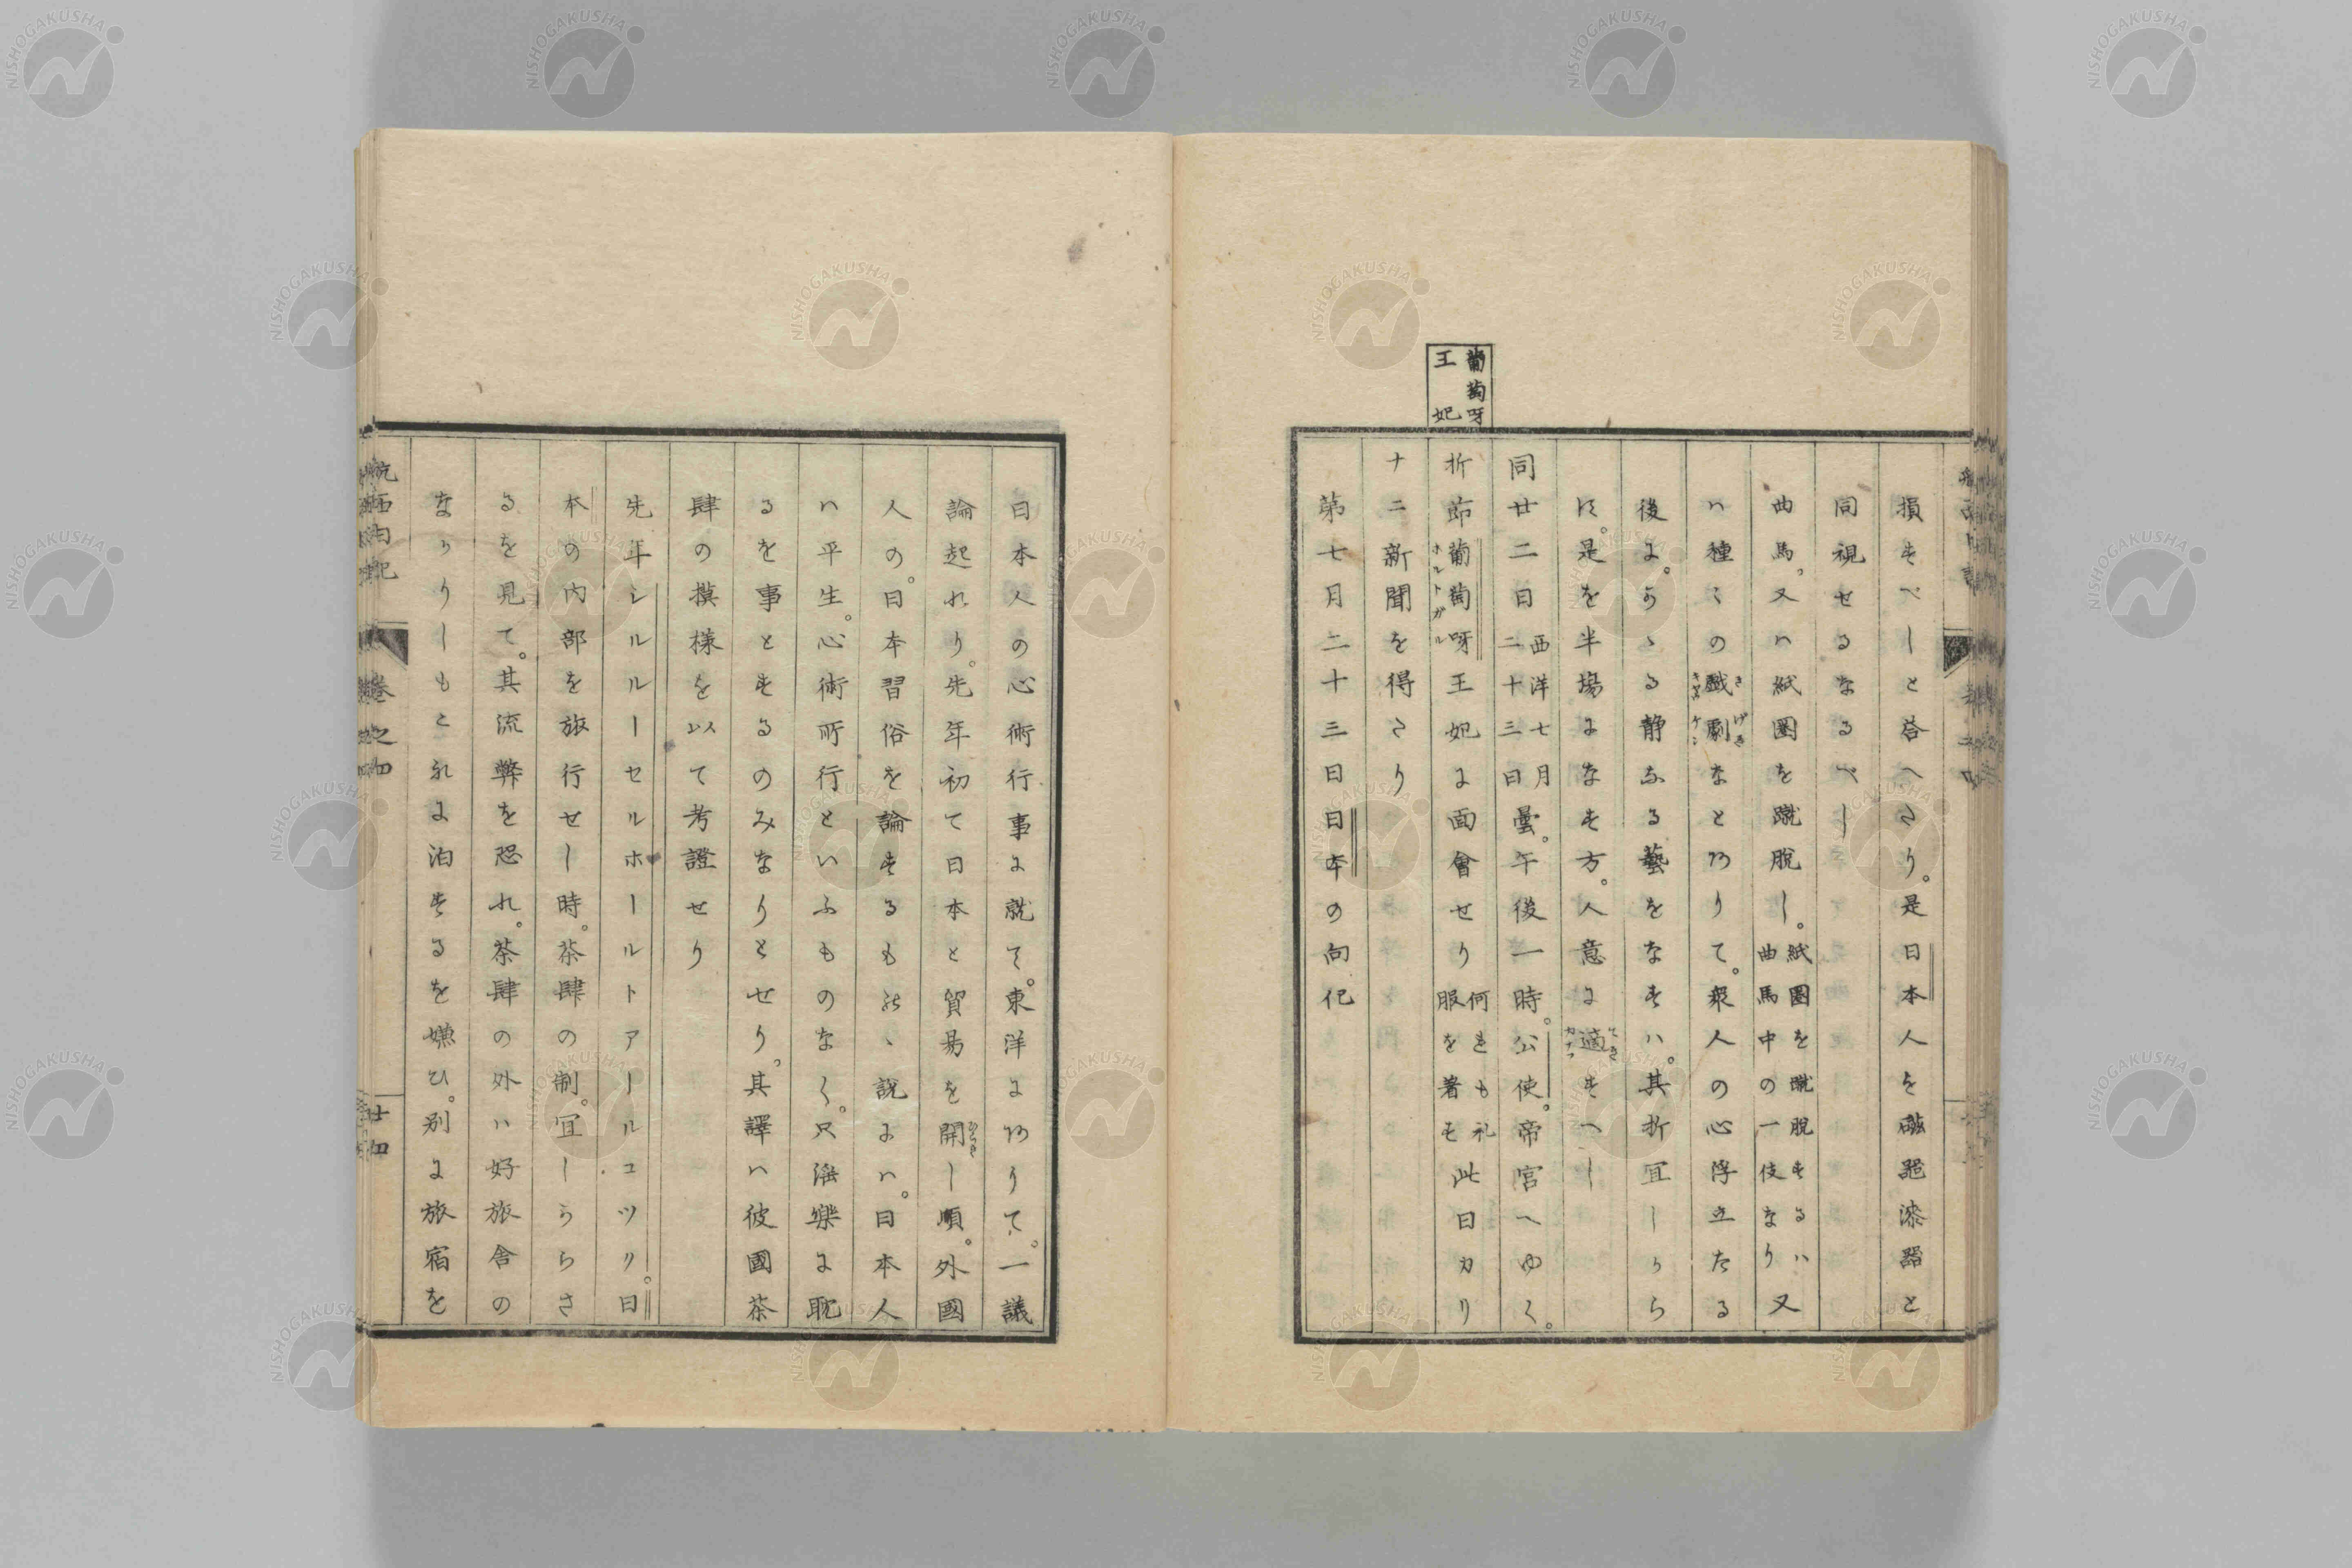 損すべしと答へたり。是日本人を磁器漆器と
同視せるなるべし
曲馬。又ハ紙圏を蹴脱し。紙圏を蹴脱するハ曲馬中の一伎なり又
ハ種〻の戯劇なとありて。衆人の心浮立たる
後に。かゝる静なる藝をなすハ。其折宜しから
す。是を半場になす方。人意に適すへし
同廿二日西洋七月二十三日曇。午後一時。公使。帝宮へゆく。
折節葡萄呀王妃に面會せり何れも礼服を著モ此日カリ
ナニ新聞を得たり
第七月二十三日日本の向化
葡萄呀
王妃
ホルトガル
日本人の心術行事に就て。東洋にありて。一議
論起れり。先年初て日本と貿易を開し順。外國
人の。日本習俗を論するも能〻説にハ。日本人
ハ平生。心術所行といふものなく。只滛樂に耽
るを事とするのみなりとせり。其譯ハ彼國茶
肆の摸様を以て考證せり
先年シルルーセルホールトアールコツク。日
本の内部を旅行せし時。茶肆の制。宜しからさ
るを見て。其流弊を恐れ。茶肆の外ハ好旅舎の
なかりしもこれに泊するを嫌ひ。別に旅宿を
航西日記
卷之四
廿四
NISHOGAKUSHA